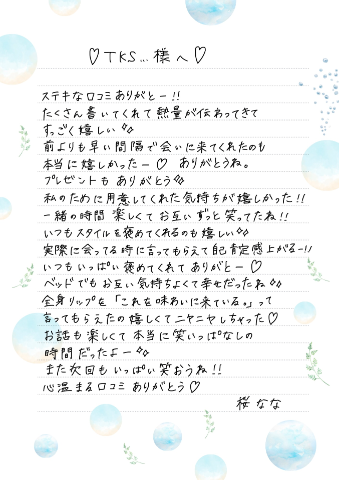 ♡TKS...様へ♡
ステキな口コミありがとー!!
たくさん書いてくれて熱量が伝わってきて
すっごく嬉しい✨
前よりも早い間隔で会いに来てくれたのも
本当に嬉しかったー♡ ありがとうね。
プレゼントも ありがとう✨
私のために用意してくれた気持ちが嬉しかった!!
一緒の時間 楽しくてお互いずっと笑ってたね!!
いつもスタイルを褒めてくれるのも嬉しい✨
実際に会ってる時に言ってもらえて自己肯定感上がるー!!
いつもいっぱい褒めてくれてありがとー♡
ベッドでもお互い気持ちよくて幸せだったね✨
全身リップを「これを味わいに来ている。」って
言ってもらえたの嬉しくてニヤニヤしちゃった♡
お話も楽しくて本当に笑いっぱなしの
時間だったよー✨
また次回もいっぱい笑おうね!!
心温まる口コミありがとう♡
桜 なな